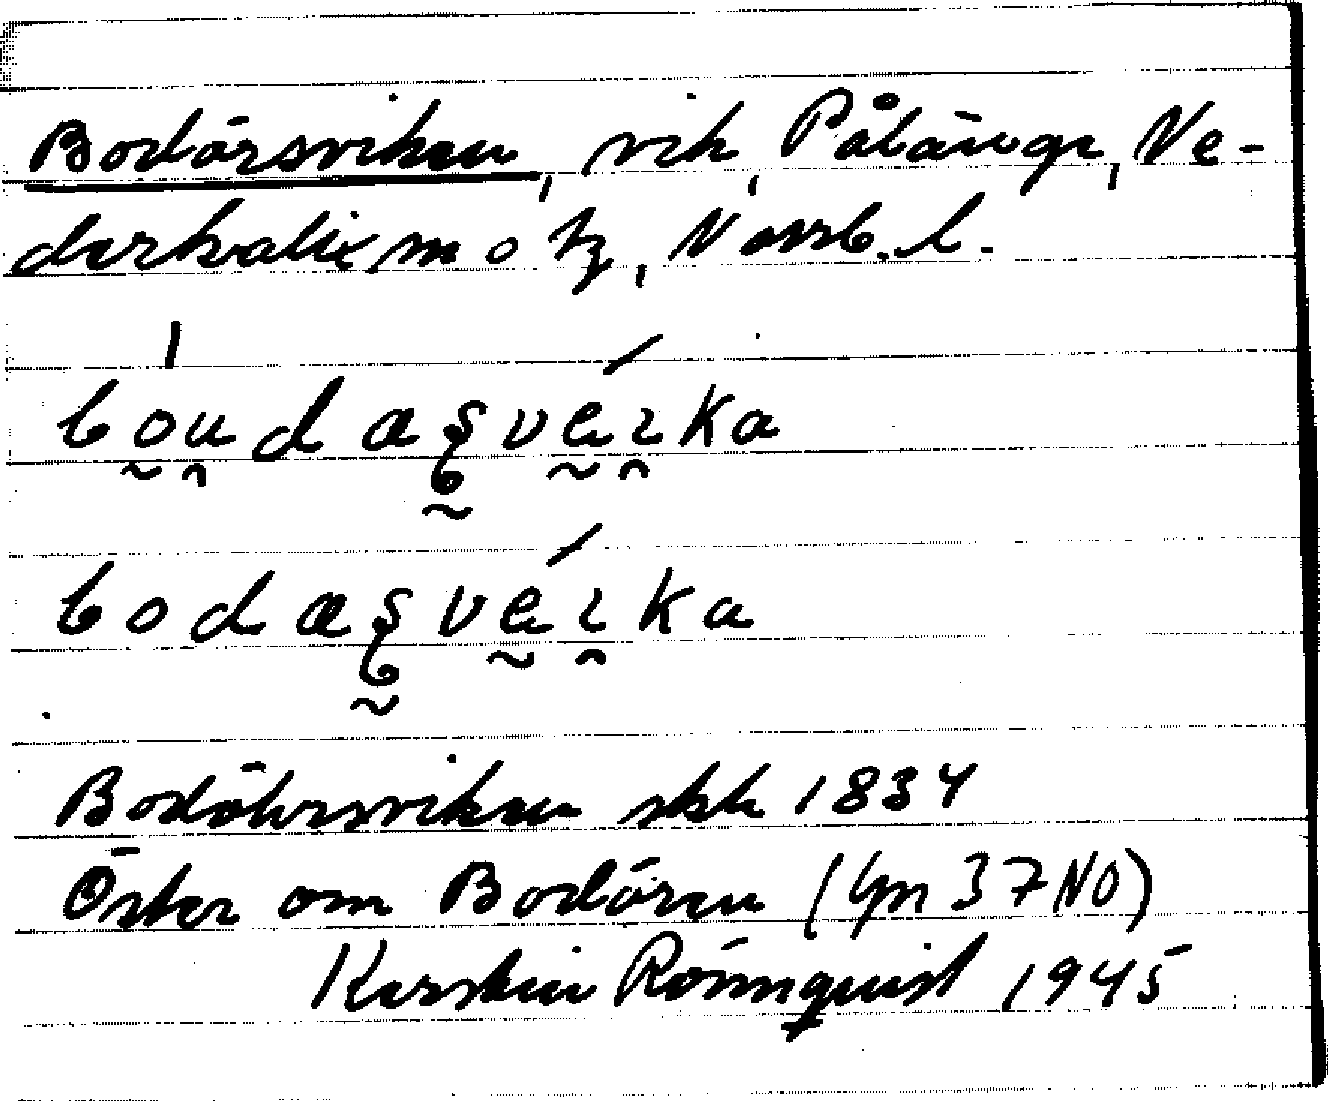 Bodörsviken, vik, Pålänge, Ne-
derkalix m o tg, Norrb. l.
boudæs̨véi̯ka
bodæs̨véi̯ka
Bodöhrsviken skk 1834
Öster om Bodören (Gm 37 NO)
Kerstin Rönnquist 1945